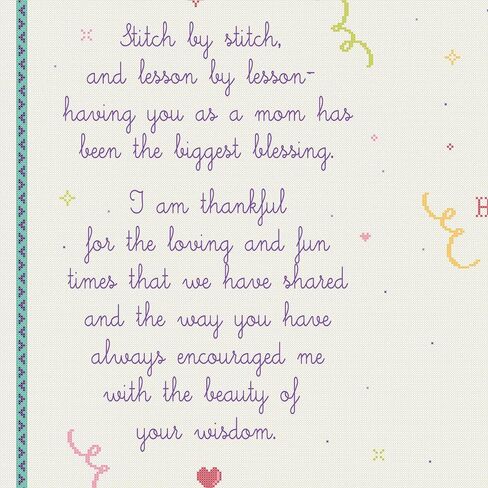 Stitch by stitch,
and lesson by lesson-
having you as a mom has
been the biggest blessing.
I am thankful
for the loving and fun
times that we have shared
and the way you have
always encouraged me
with the beauty of
your wisdom.
H